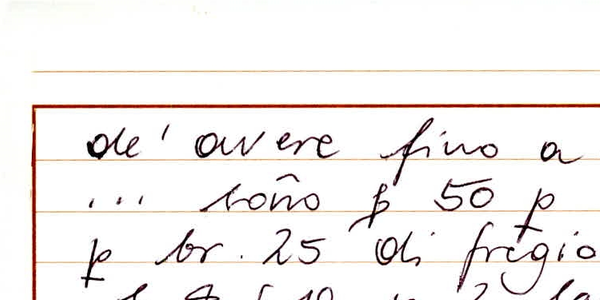 de' avere fino a
... soño ꝑ 50 ꝑ
ꝑ br. 25 di fregio